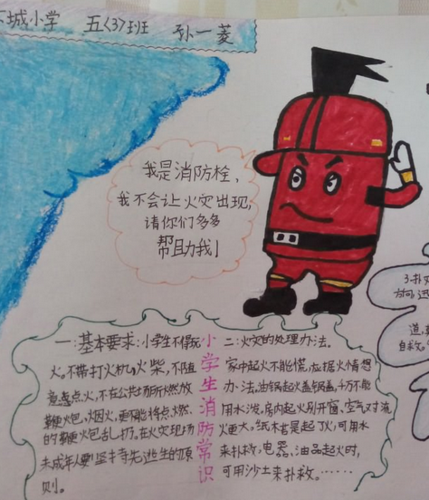 城小学 五〈3〉班 孙一菱
我是消防栓、
我不会让火灾出现,
请你们多多
帮助我!
小学生消防常识
一:基本要求:小学生不得玩
火。不带打火机,火柴,不随
意点火,不在公共场所燃放
鞭火炮,烟火,更不能将点燃
的鞭火包乱扔。在火灾现场
未成年人要坚持先逃生的原
则。
二:火灾的处理办法。
家中起火不能慌,应据火情想
办法。油锅起火盖锅盖,千万不能
用水泼。房内起火别开窗,空气对流
火更大。纸木着是起火,可用水
来扑救,电器、油品起火时,
可用沙土来扑救。……
3.扑
道,
自救。